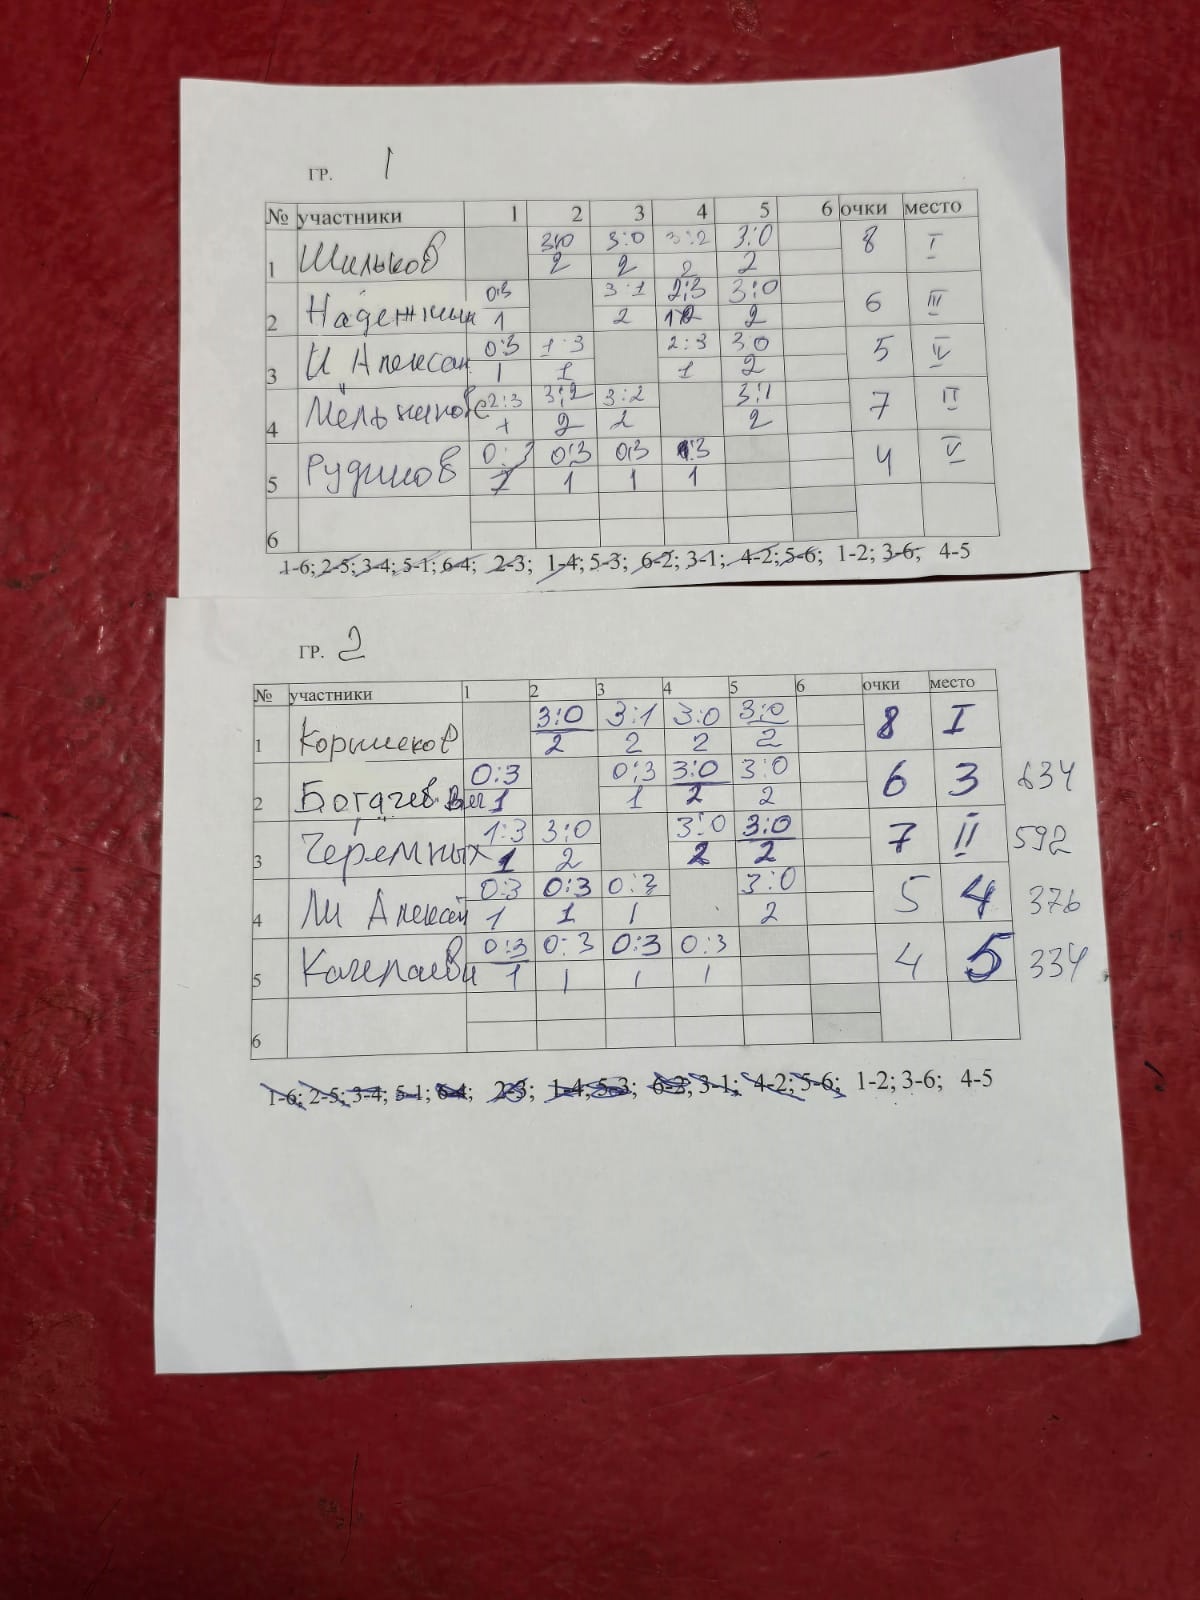 ГР. 1
№ участники 1 2 3 4 5 6 очки место
1 Шильков 3:0 3:0 3:2 3:0 8 I
2 2 2 2
2 Надежкин 0:3 3:1 2:3 3:0 6 III
1 2 1 2
3 И Алексан 0:3 1:3 2:3 3:0 5 IV
1 1 1 2
4 Мельников С 2:3 3:2 3:2 3:1 7 II
1 2 2 2
5 Рудиков 0:3 0:3 0:3 1:3 4 V
1 1 1 1
6
1-6; 2-5; 3-4; 5-1; 6-4; 2-3; 1-4; 5-3; 6-2; 3-1; 4-2; 5-6; 1-2; 3-6; 4-5
ГР. 2
№ участники 1 2 3 4 5 6 очки место
1 Коршеков 3:0 3:1 3:0 3:0 8 I
2 2 2 2
2 Богачев 0:3 0:3 3:0 3:0 6 3 634
1 1 2 2
3 Черемных 1:3 3:0 3:0 3:0 7 II 592
1 2 2 2
4 Ли Алексей 0:3 0:3 0:3 3:0 5 4 376
1 1 1 2
5 0:3 0:3 0:3 0:3 4 5 334
1 1 1 1
6
1-6; 2-5; 3-4; 5-1; 6-4; 2-3; 1-4; 5-3; 6-2; 3-1; 4-2; 5-6; 1-2; 3-6; 4-5